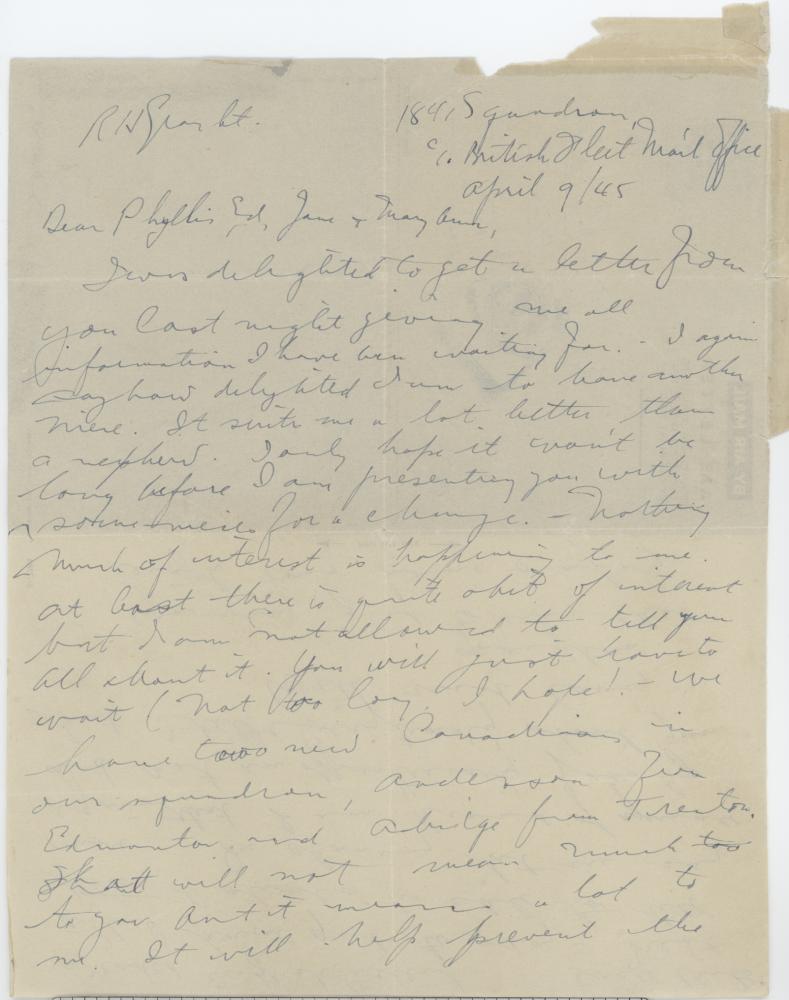 R H Gray Lt.
1841 Squadron,
c/o British Fleet Mail Office
April 9/45
Dear Phyllis Ed, Jane & Mary Ann,
I was delighted to get a letter from
you last night giving me all
information I have been waiting for. - I again
say how delighted I am to have another
niece. It suits me a lot better than
a nephew. I only hope it won't be
long before I am presenting you with
some nieces for a change. - Nothing
much of interest is happening to me.
at least there is quite a bit of interest
but I am not allowed to tell you
all about it. You will just have to
wait (not too long, I hope! - we
have two new Canadians in
our squadron, Anderson from
Edmonton and Asbridge from Trenton.
That will not mean much too
to you but it means a lot to
me. It will help prevent the